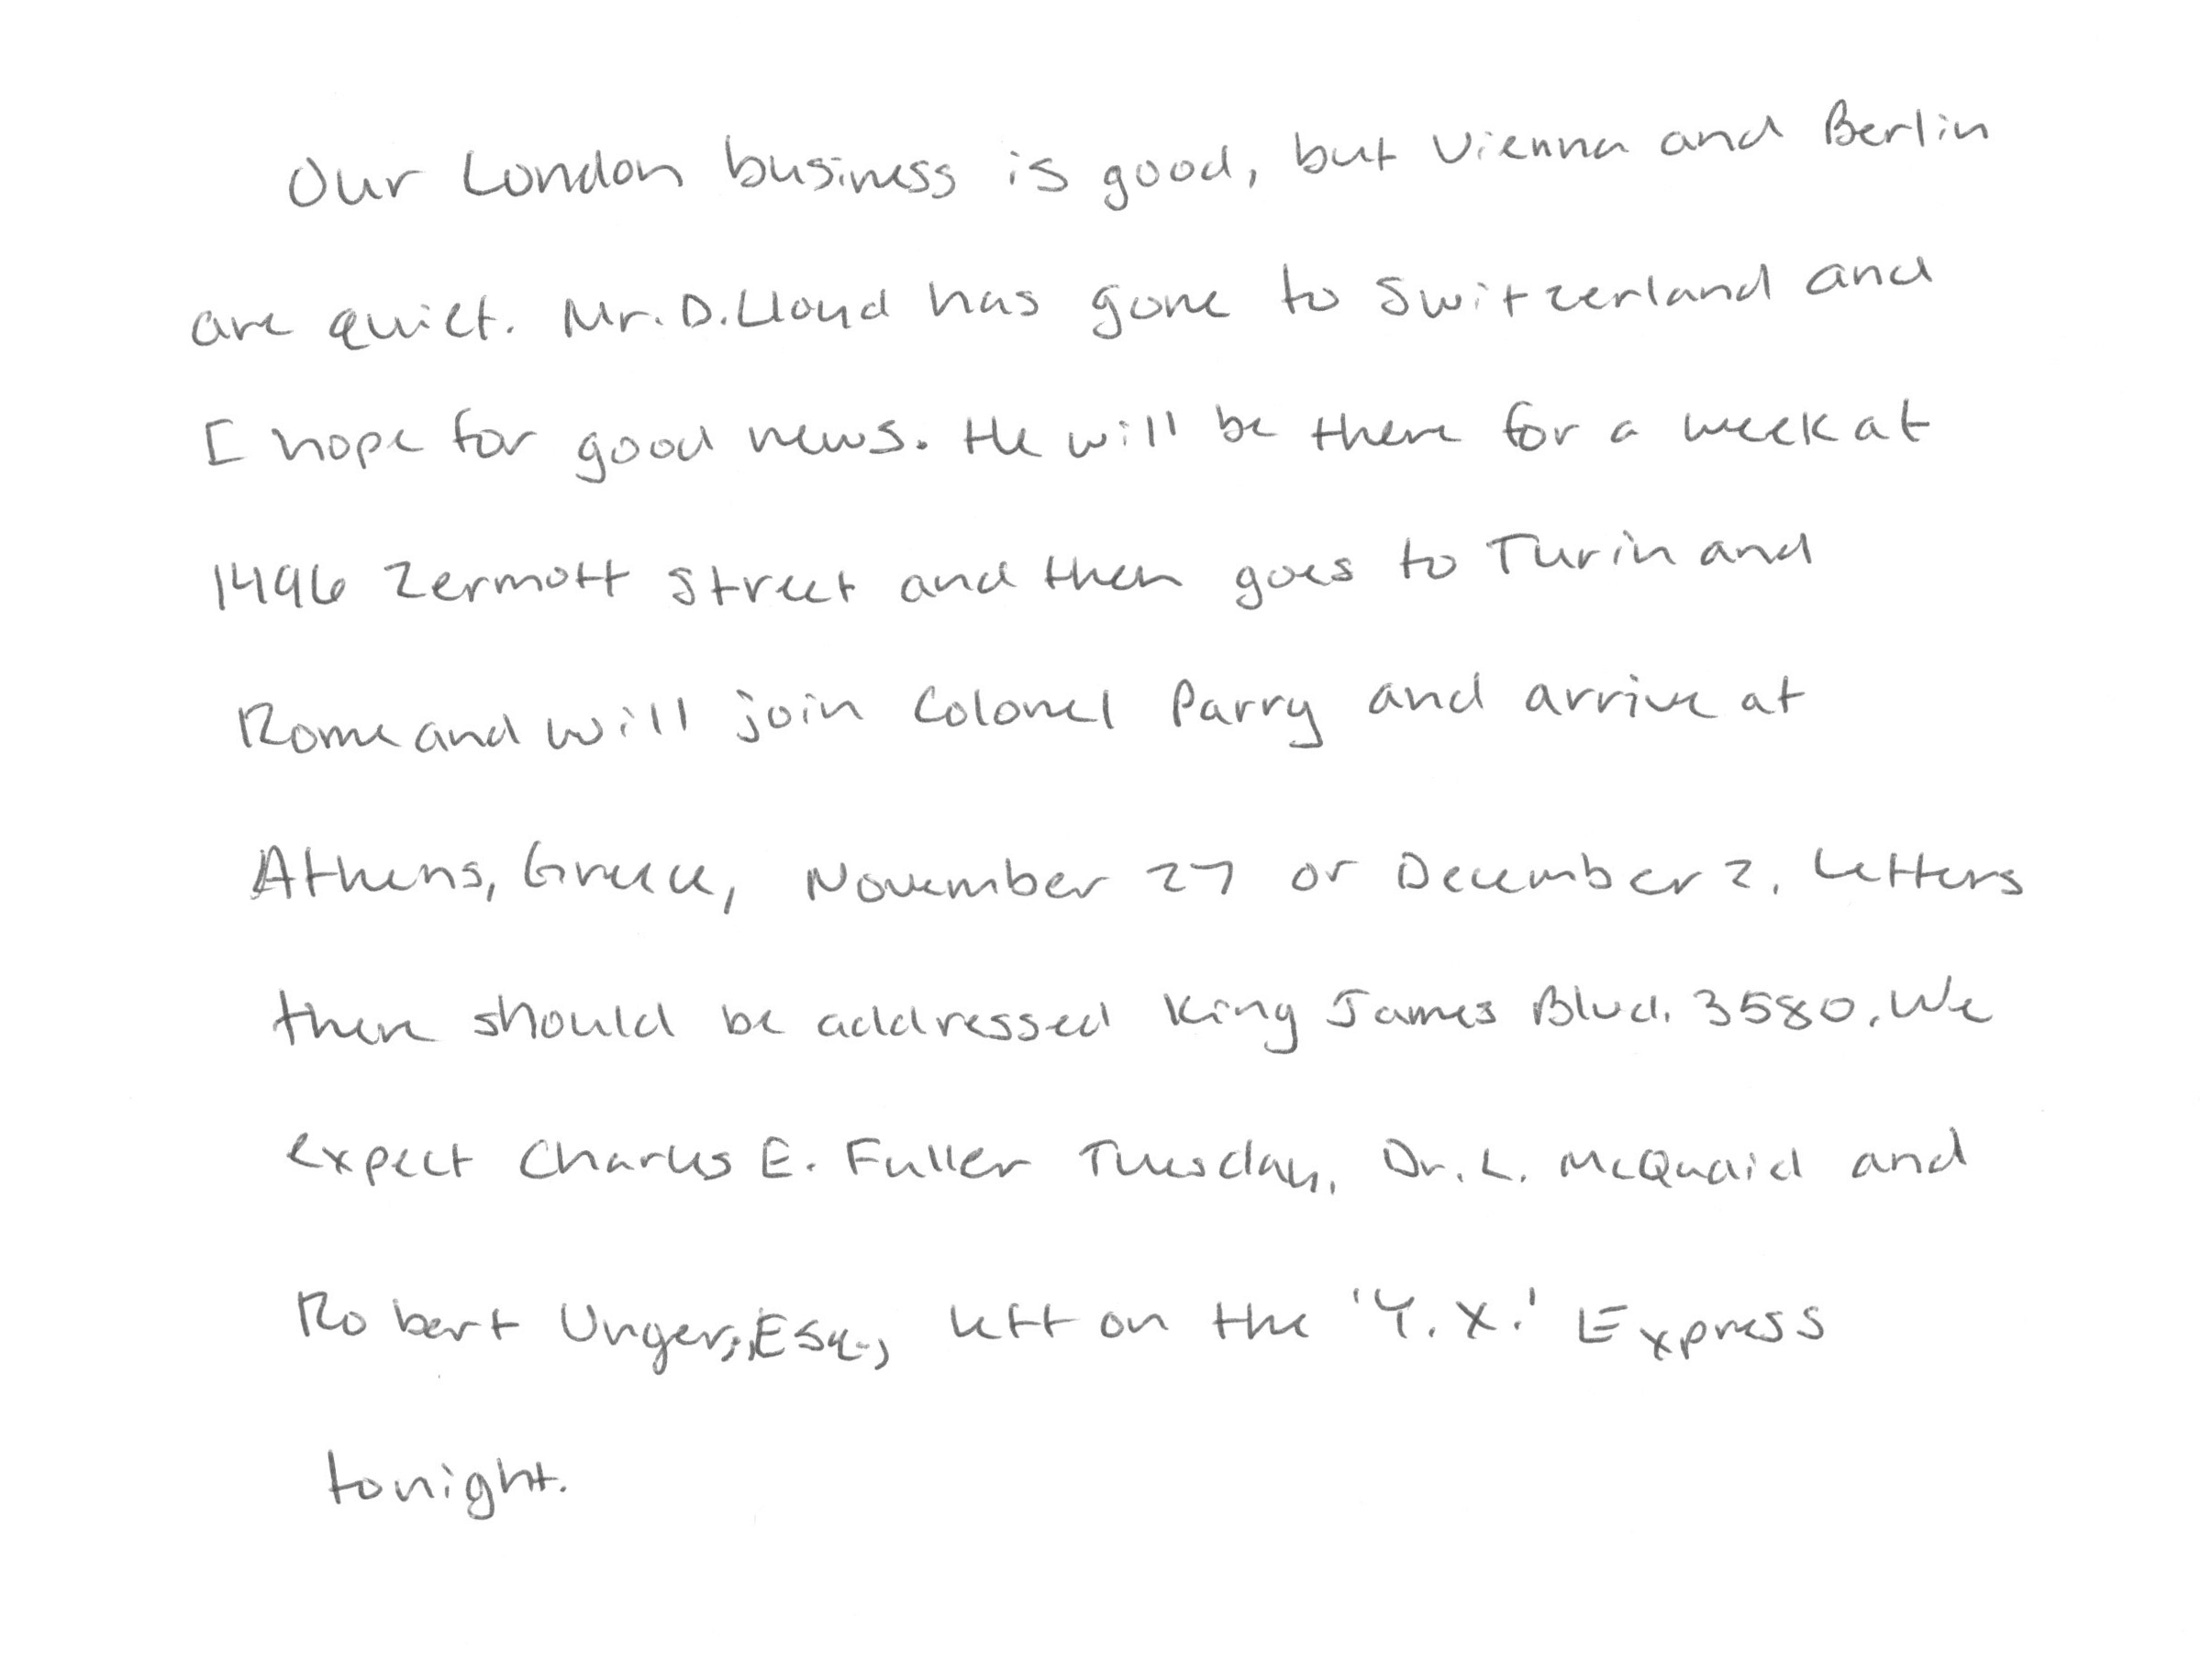 Our London business is good, but Vienna and Berlin
are quiet. Mr. D. Lloyd has gone to Switzerland and
I hope for good news. He will be there for a week at
1496 Zermott Street and then goes to Turin and
Rome and will join Colonel Parry and arrive at
Athens, Greece, November 27 or December 2. Letters
there should be addressed King James Blvd. 3580. We
expect Charles E. Fuller Tuesday. Dr. L. McQuaid and
Robert Unger, Esq., left on the 'Y.X.' Express
tonight.